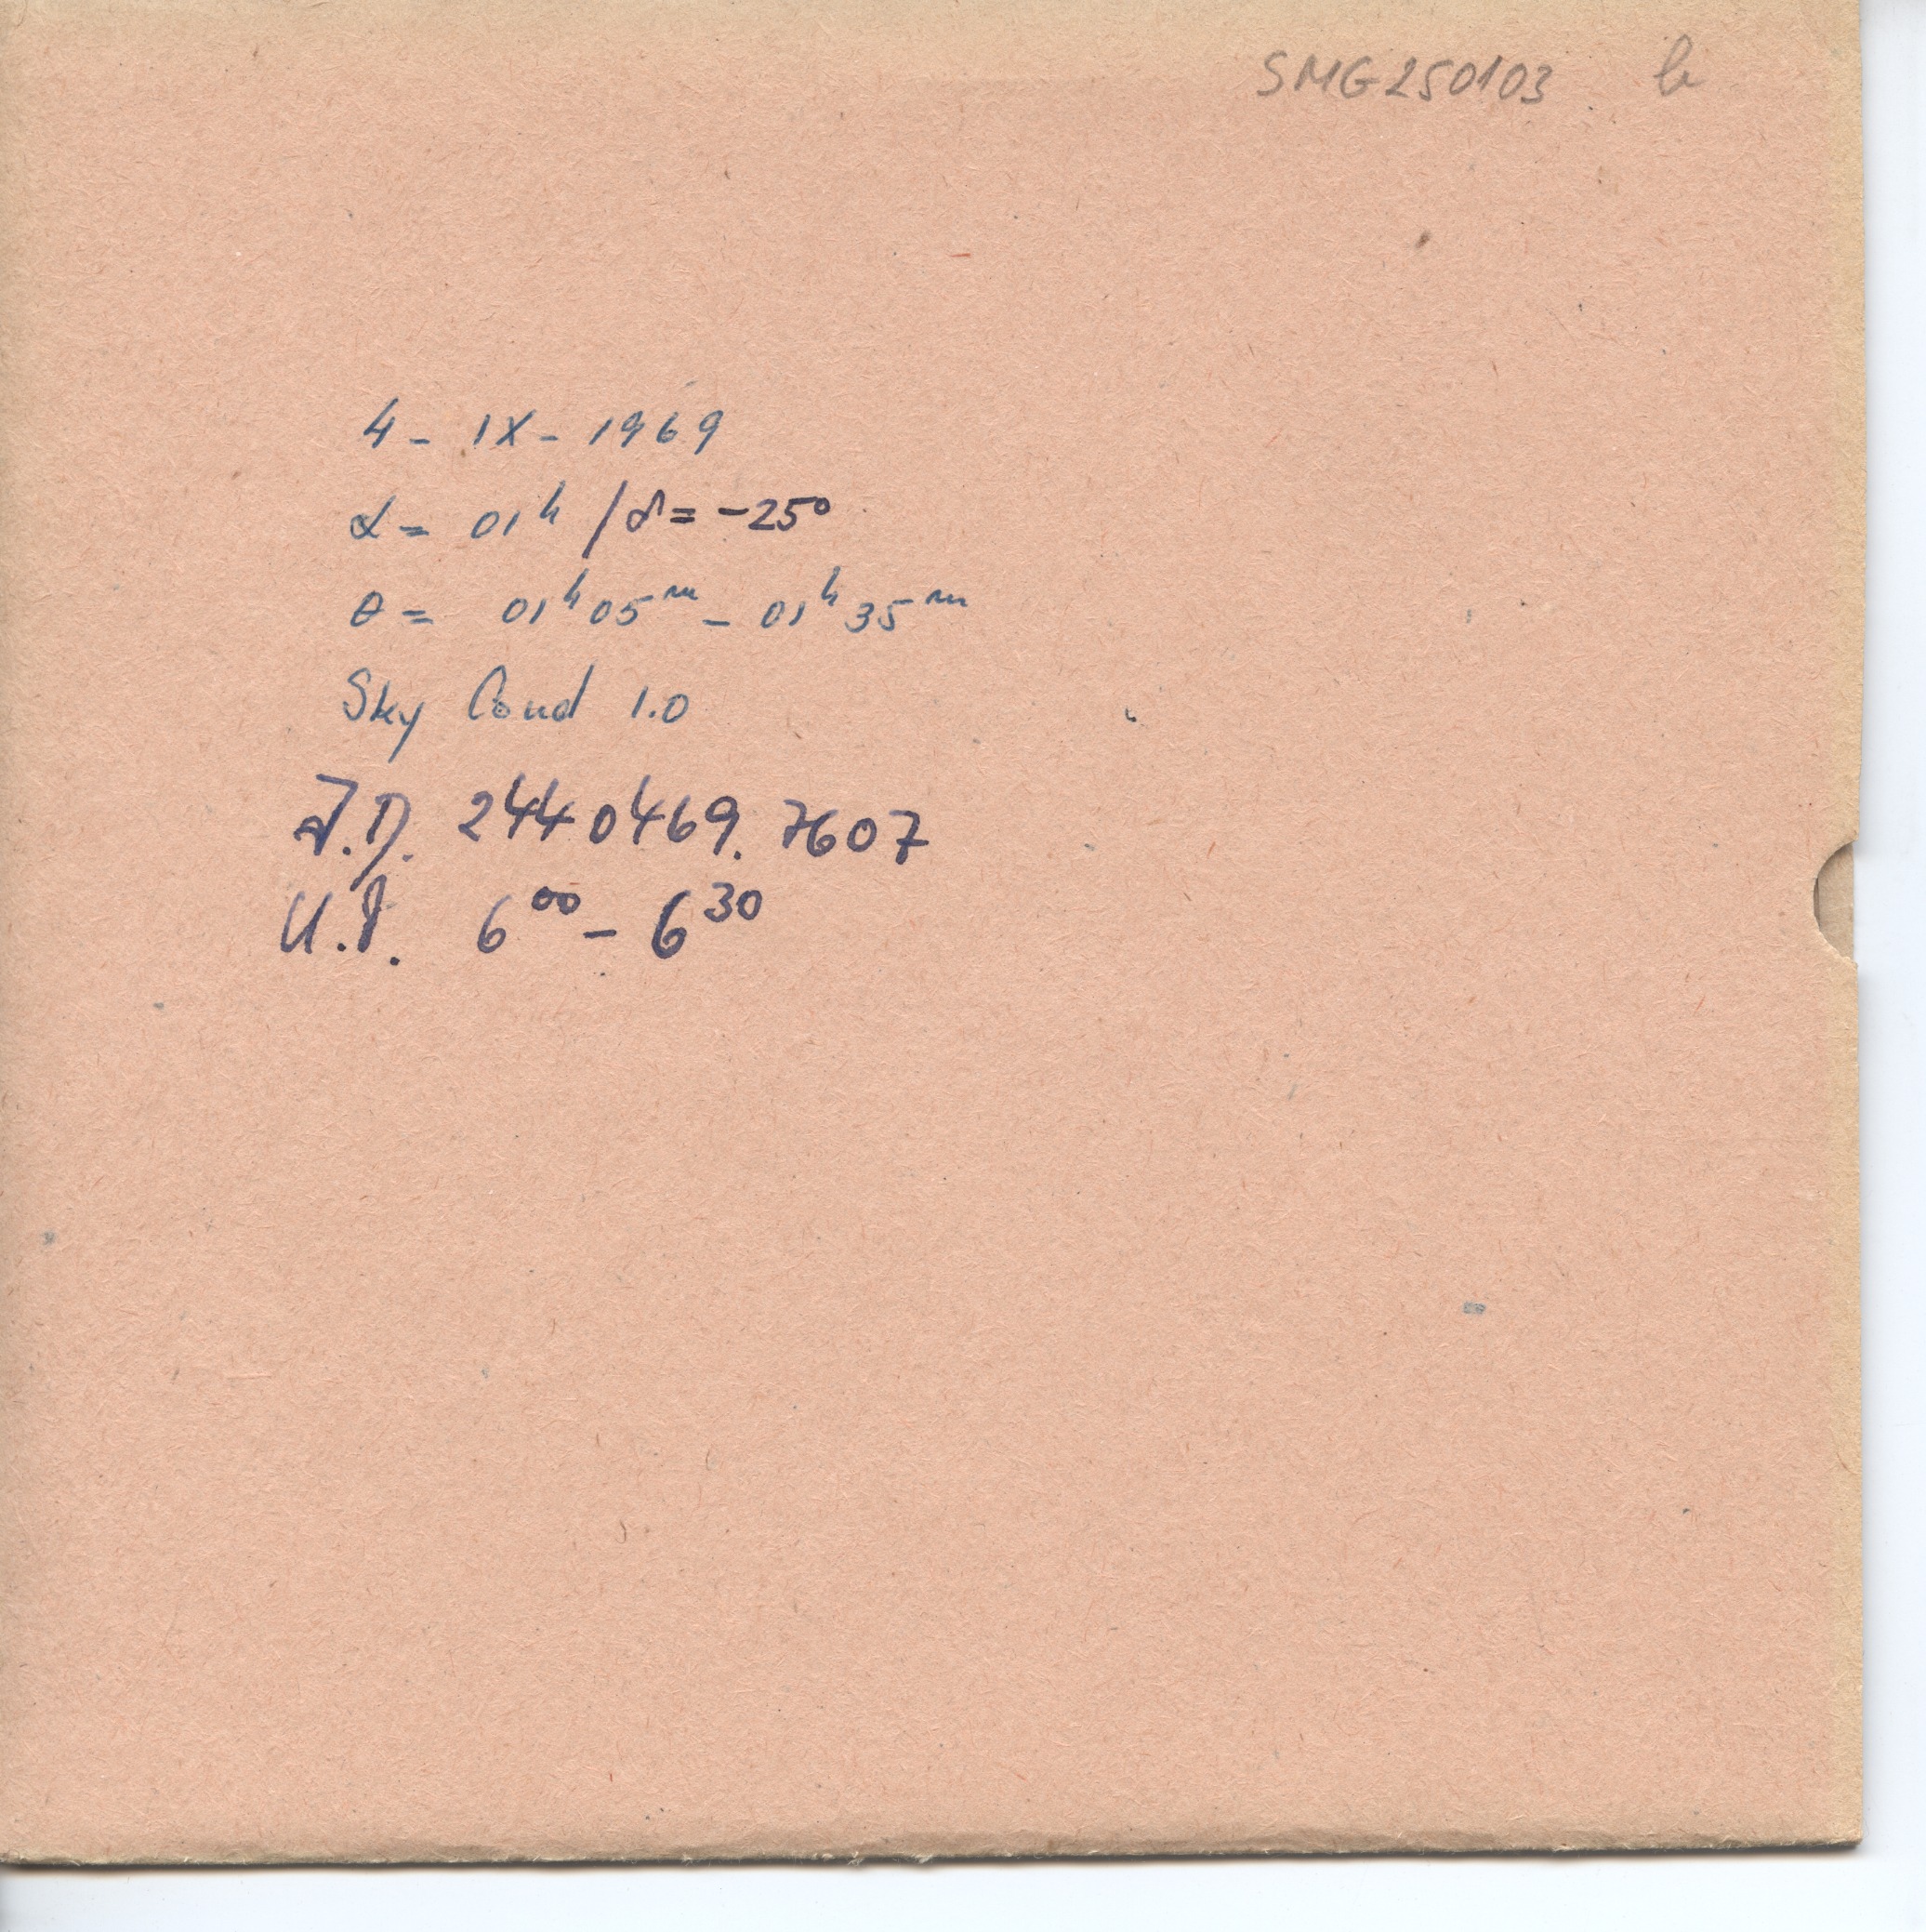 SMG250103 b
4 - IX - 1969
α = 01ʰ / δ = -25°
θ = 01ʰ05ᵐ - 01ʰ35ᵐ
Sky Cond 1.0
J.D. 2440469.7607
U.T. 6⁰⁰ - 6³⁰